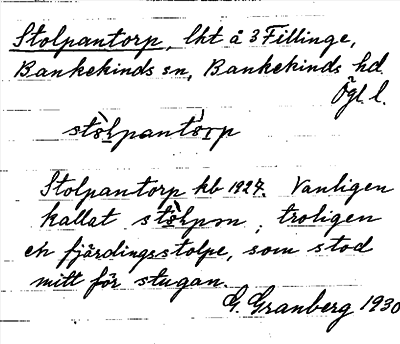 Stolpantorp, lht å 3 Fillinge,
Bankekinds sn, Bankekinds hd.
Ögl. l.
stòlpantòrp
Stolpantorp kb 1927. Vanligen
kallat stòlpɷn; troligen
eh fjärdingsstolpe, som stod
mitt för stugan.
G. Granberg 1930